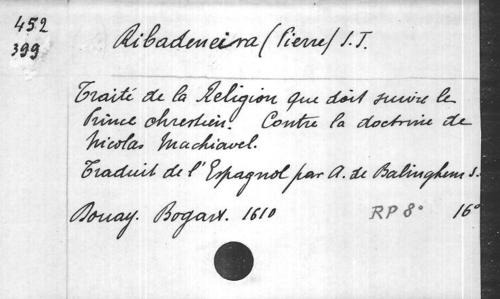 452
399
Ribadeneira (Pierre) S.J.
Traité de la Religion que doit suivre le
Prince chrestien. Contre la doctrine de
Nicolas Machiavel.
Traduit de l'Espagnol par A. de Balinghem S.
Douay. Bogart. 1610 RP 8° 16°